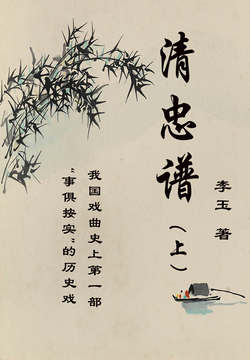 清忠谱
(上)
李玉 著
我国戏曲史上第一部
“事俱按实”的历史戏